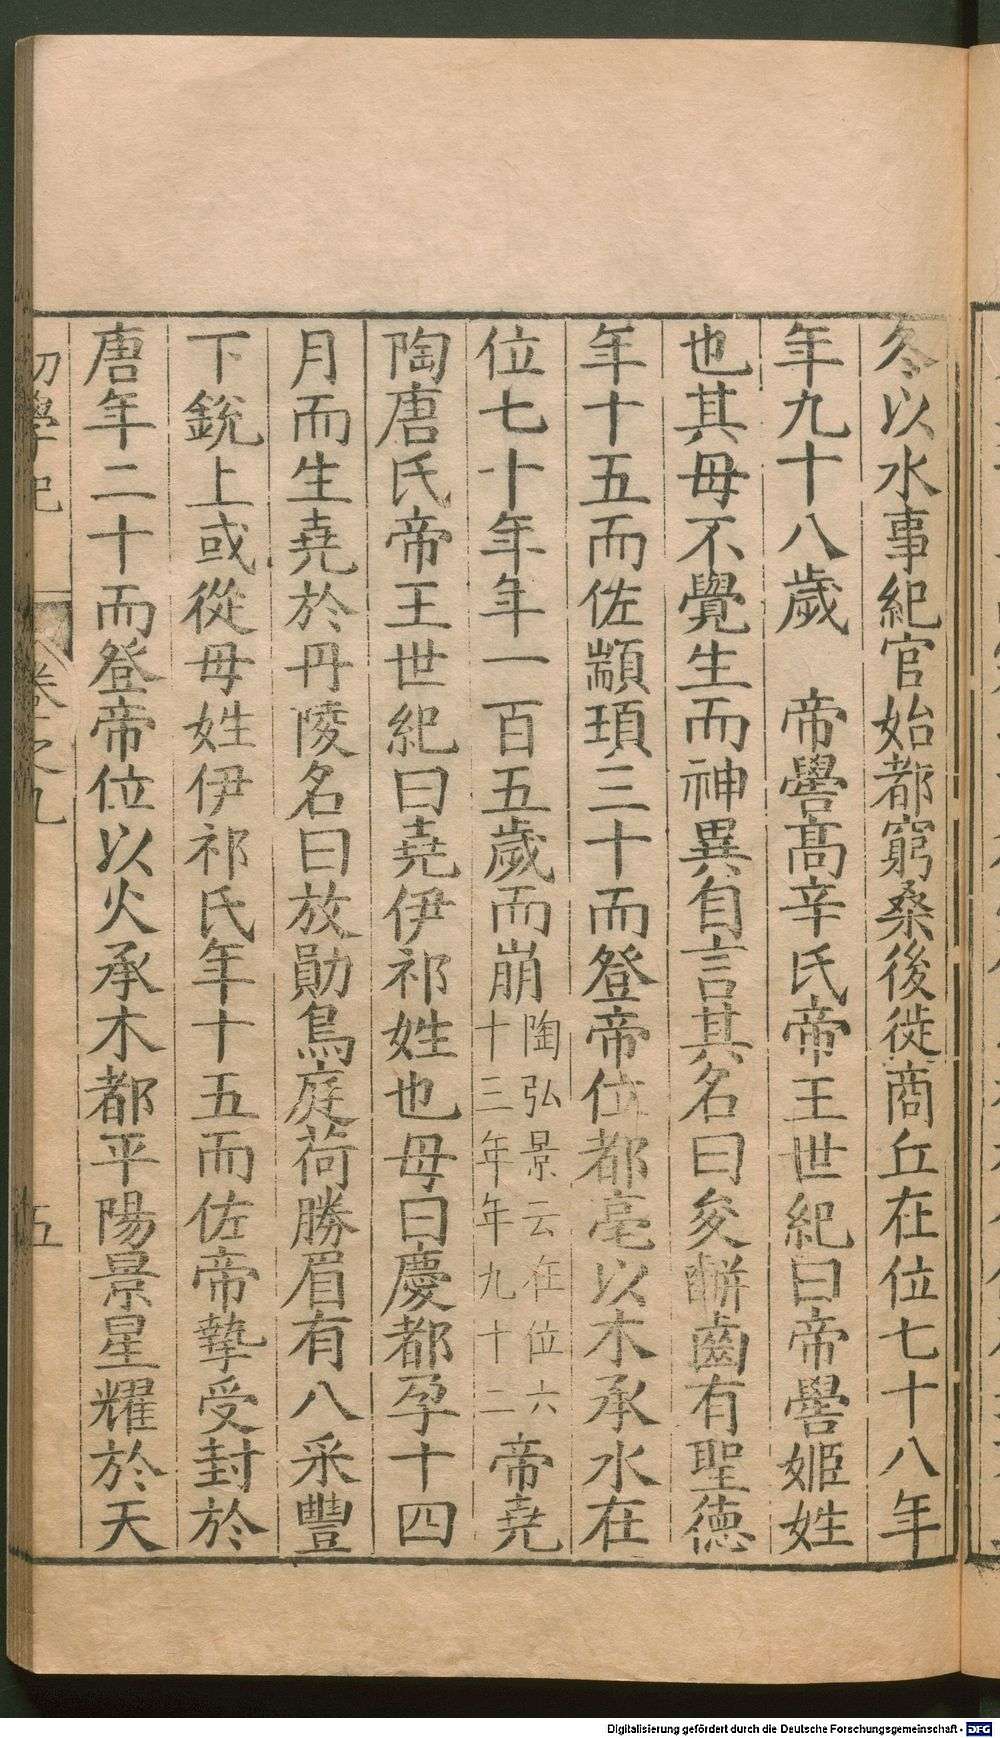 冬以水事紀官始都窮桑後徙商丘在位七十八年
年九十八歲　帝嚳髙辛氏帝王世紀曰帝嚳姬姓
也其母不覺生而神異自言其名曰夋齞齒有聖德
年十五而佐顓頊三十而登帝位都亳以木承水在
位七十年年一百五歲而崩陶弘景云在位六十三年年九十二帝堯
陶唐氏帝王世紀曰堯伊祁姓也母曰慶都孕十四
月而生堯於丹陵名曰放勛鳥庭荷勝眉有八采豐
下銳上或從母姓伊祁氏年十五而佐帝摯受封於
唐年二十而登帝位以火承木都平陽景星耀於天
初學記　卷之九　五
Digitalisierung gefördert durch die Deutsche Forschungsgemeinschaft - DFG